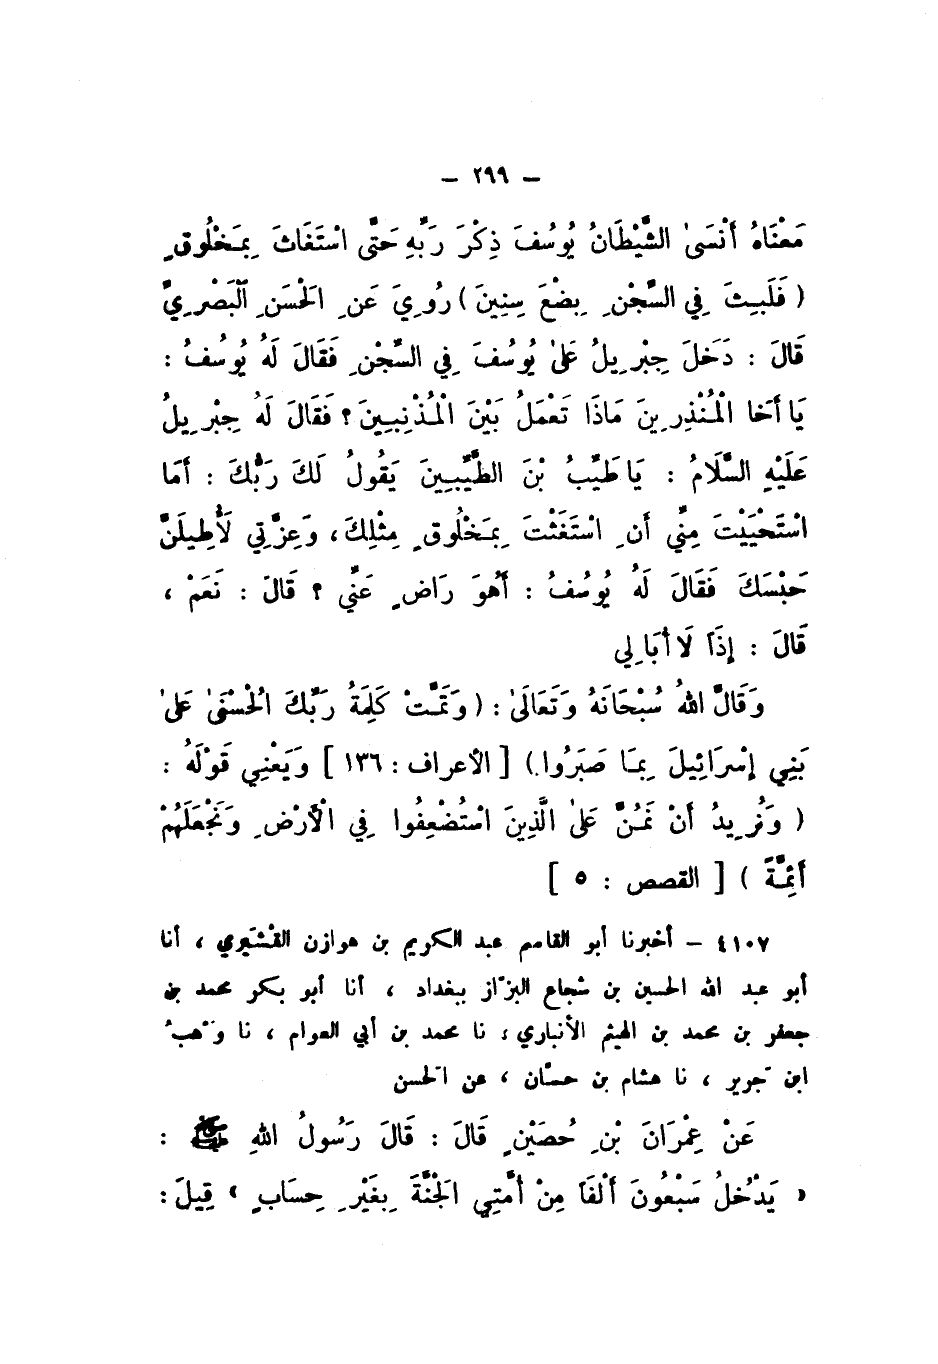 – ٢٩٩ –
مَعْنَاهُ أَنْسَىٰ الشَّيْطَانُ يُوسُفَ ذِكْرَ رَبِّهِ حَتَّى اسْتَغَاثَ بِمَخْلُوقٍ
( فَلَبِثَ فِي السِّجْنِ بِضْعَ سِنِينَ ) رُوِيَ عَنِ الْحَسَنِ الْبَصْرِيِّ
قَالَ : دَخَلَ جِبْرِيلُ عَلىٰ يُوسُفَ فِي السِّجْنِ فَقَالَ لَهُ يُوسُفُ :
يَا أَخَا الْمُنْذِرِينَ مَاذَا تَعْمَلُ بَيْنَ الْمُذْنِبِينَ ؟ فَقَالَ لَهُ جِبْرِيلُ
عَلَيْهِ السَّلَامُ : يَا طَيِّبُ بْنَ الطَّيِّبِينَ يَقُولُ لَكَ رَبُّكَ : أَمَا
اسْتَحْيَيْتَ مِنِّي أَنِ اسْتَغَثْتَ بِمَخْلُوقٍ مِثْلِكَ ، وَعِزَّتِي لَأُطِيلَنَّ
حَبْسَكَ فَقَالَ لَهُ يُوسُفُ : أَهُوَ رَاضٍ عَنِّي ؟ قَالَ : نَعَمْ ،
قَالَ : إِذَاً لَا أُبَالِي
وَقَالَ اللهُ سُبْحَانَهُ وَتَعَالَىٰ : ( وَتَمَّتْ كَلِمَةُ رَبِّكَ الْحُسْنَىٰ عَلىٰ
بَنِي إِسْرَائِيلَ بِمَا صَبَرُوا ) [ الأعراف : ١٣٦ ] وَيَعْنِي قَوْلَهُ :
( وَنُرِيدُ أَنْ نَمُنَّ عَلىٰ الَّذِينَ اسْتُضْعِفُوا فِي الْأَرْضِ وَنَجْعَلَهُمْ
أَئِمَّةً ) [ القصص : ٥ ]
٤١٠٧ – أخبرنا أبو القاسم عبد الكريم بن هوازن القُشَيري ، أنا
أبو عبد الله الحسين بن شجاع البزّاز ببغداد ، أنا أبو بكر محمد بن
جعفر بن محمد بن الهيثم الأنباري ، نا محمد بن أبي العوام ، نا وَهبُ
ابن جَرير ، نا هشام بن حسّان ، عن الحَسن
عَنْ عِمْرَانَ بْنِ حُصَيْنٍ قَالَ : قَالَ رَسُولُ اللهِ ﷺ :
« يَدْخُلُ سَبْعُونَ أَلْفَاً مِنْ أُمَّتِي الْجَنَّةَ بِغَيْرِ حِسَابٍ » قِيلَ :